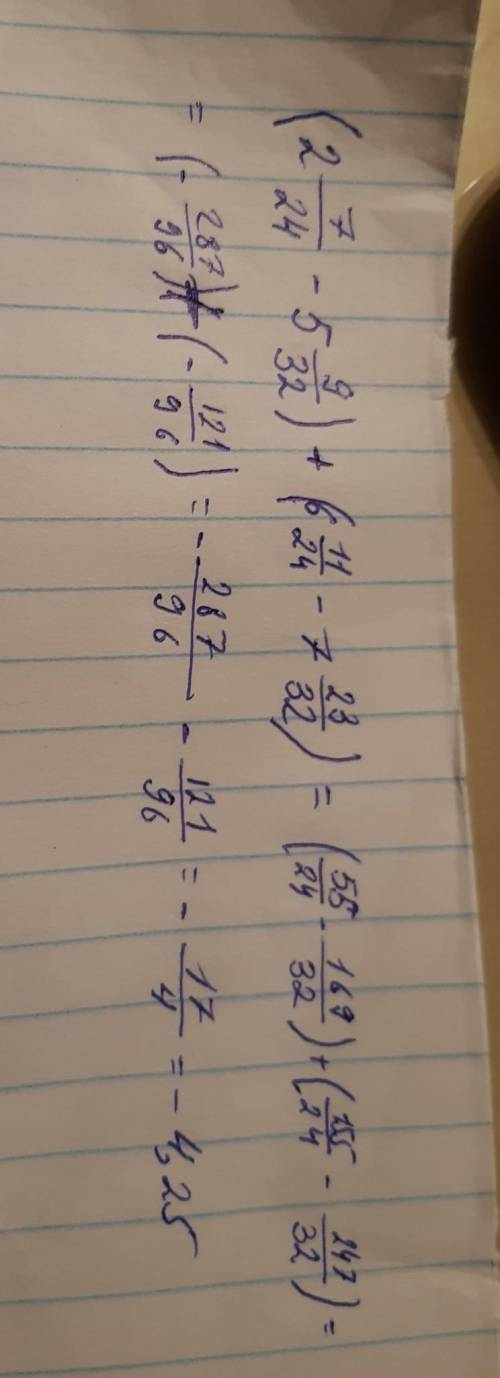 (2 7/24 - 5 9/32) + (6 11/24 - 7 23/32) = (55/24 - 169/32) + (155/24 - 247/32) =
= (- 287/96) + (- 121/96) = - 287/96 - 121/96 = - 17/4 = - 4,25